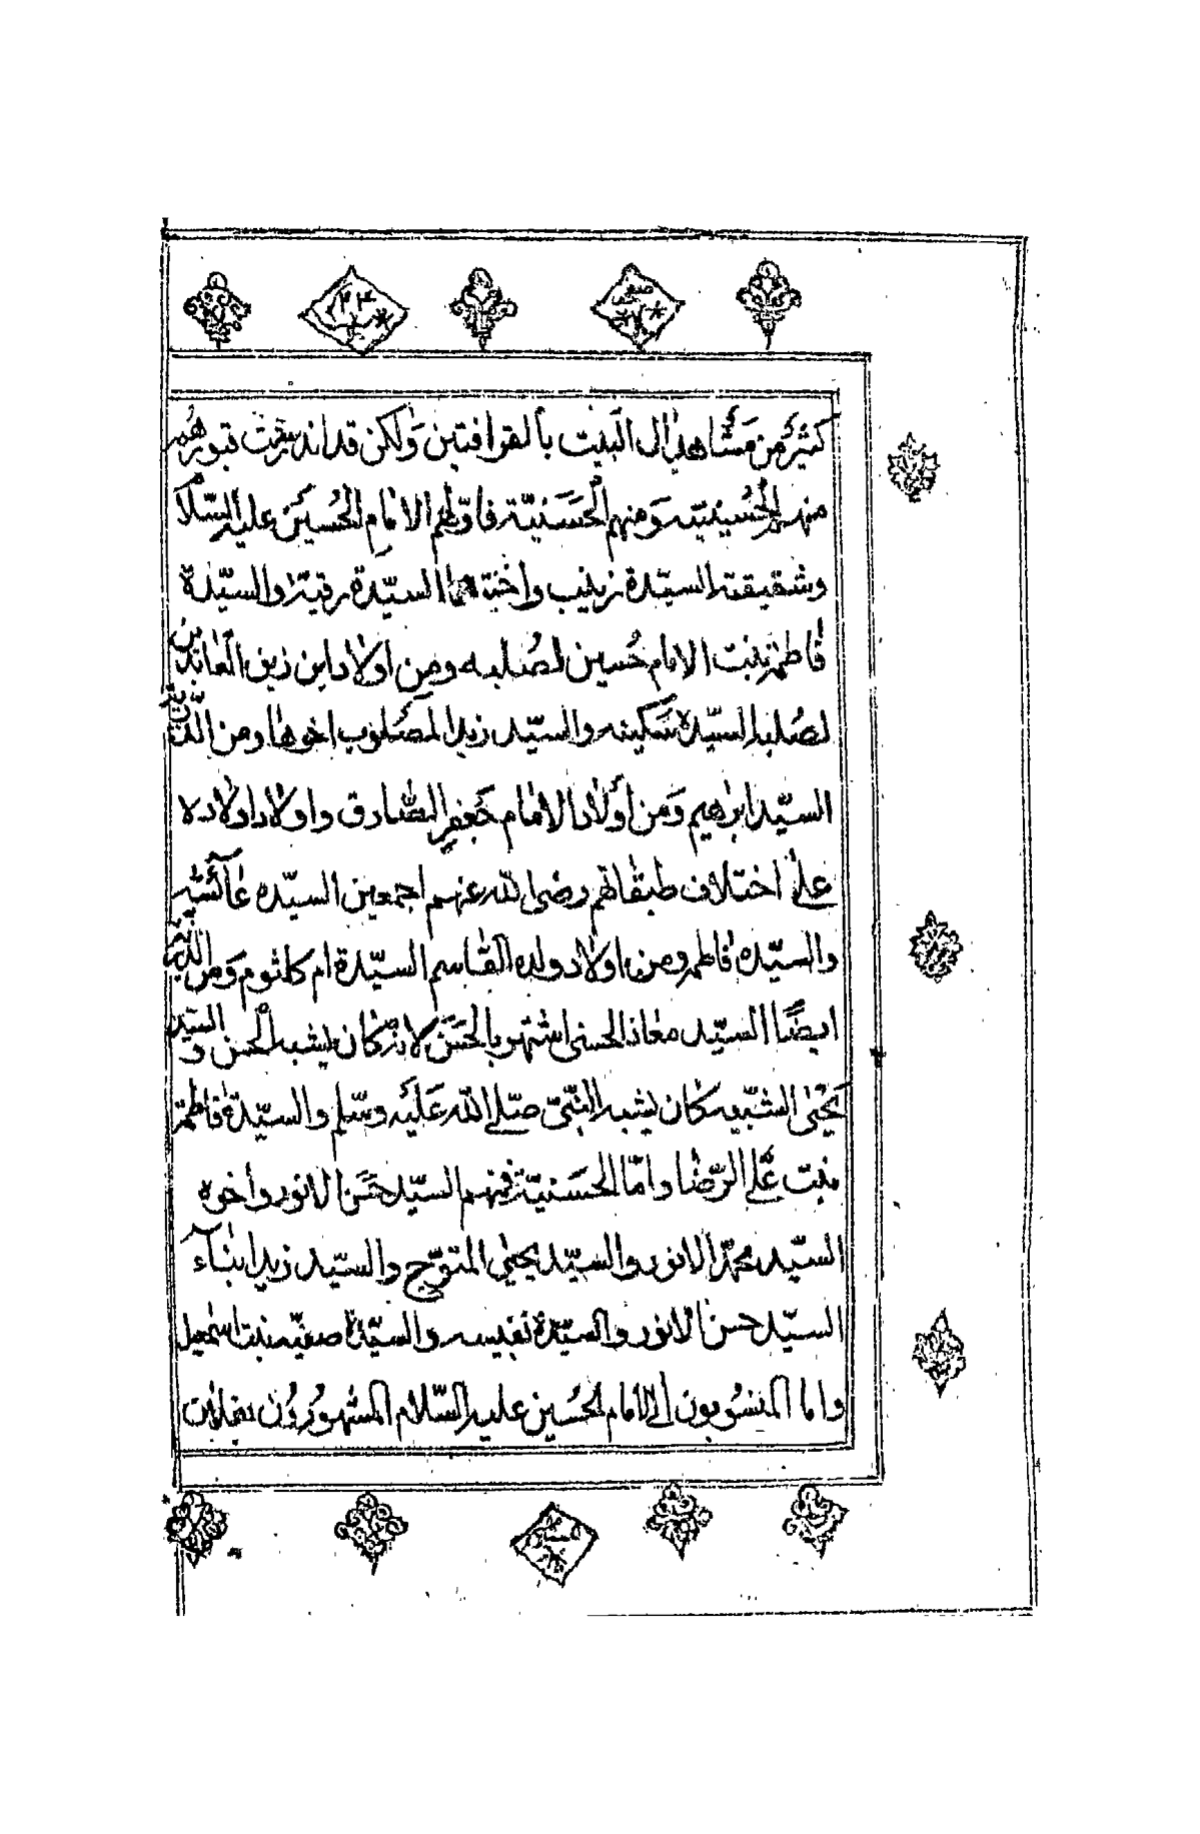 كثير من مشاهد ال البيت بالقرافتين ولكن قد اندرست قبورهم
منهم الحسينية ومنهم الحسنية فاولهم الامام الحسين عليه السلام
وشقيقته السيّدة زينب واختهما السيّدة رقية والسيّدة
فاطمة بنت الامام حسين لصلبه ومن اولاد ابن زين العابدين
لصلبه السيّدة سكينه والسيّد زيد المصلوب اخوها ومن الذرية
السيّد ابرهيم ومن اولاد الامام جعفر الصادق واولاد اولاده
على اختلاف طبقاتهم رضى الله عنهم اجمعين السيّده عآئشه
والسيّده فاطمه ومن اولاد ولده القاسم السيّدة ام كلثوم ومن الذرية
ايضًا السيّد معاذ الحسنى اشتهر بالحسن لانه كان يشبه الحسن والسيّد
يحيى الشبيه كان يشبه النبىّ صلّى الله عليه وسلّم والسيّدة فاطمة
بنت على الرّضا وامّا الحسنيّة فمنهم السيّد حسن الانور واخوه
السيّد محمّد الانور والسيّد يحيى المتوّج والسيّد زيد ابنآء
السيّد حسن الانور والسيّدة نفيسه والسيّدة صفيه بنت اسمعيل
واما المنسوبون الى الامام الحسين عليه السّلام المشهورون